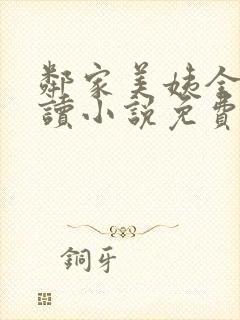 鄰家美姨全
讀小說免費
銅牙